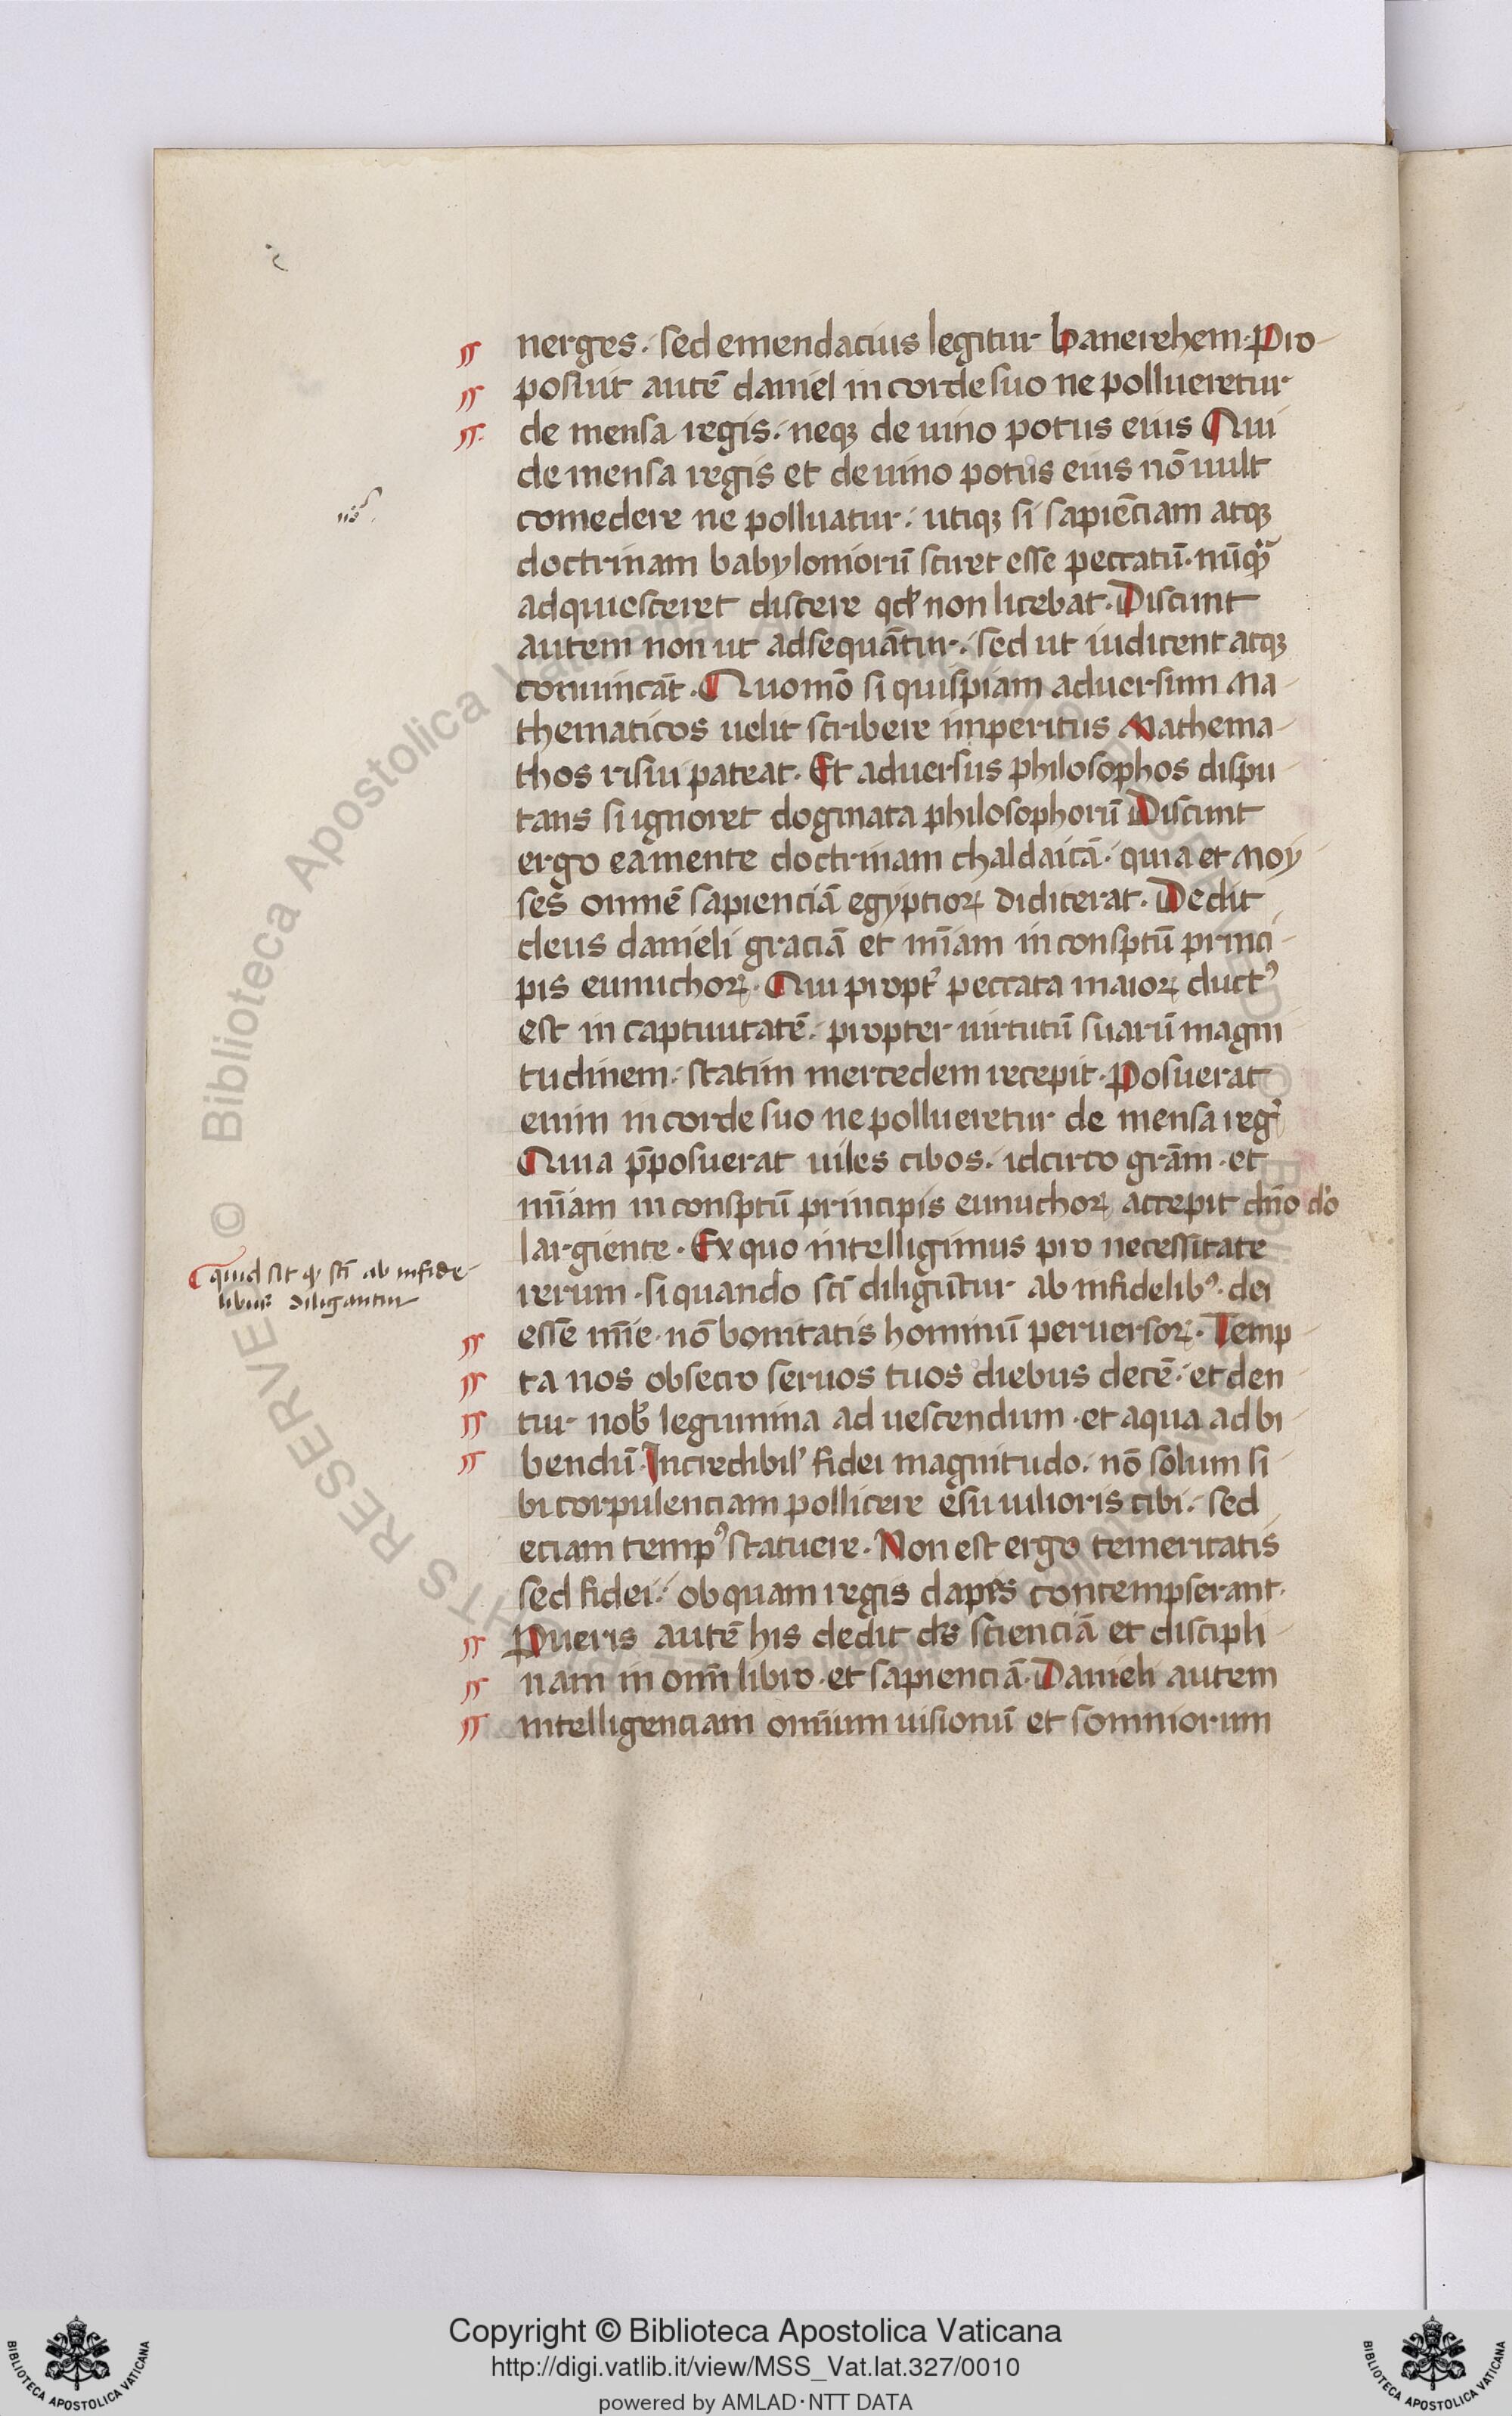 nerges. sed emendacius legitur banerehem. Pro-
posuit autē daniel in corde suo ne pollueretur
de mensa regis. neqꝫ de uino potus eius Qui
de mensa regis et de uino potus eius nō uult
comedere ne polluatur. utiqꝫ si sapiēciam atqꝫ
doctrinam babyloniorū sciret esse peccatū. nūqꝫ̄
adquiesceret discere qd̛ non licebat. Discunt
autem non ut adsequāntur. sed ut iudicent atqꝫ
conuincāt. Quomō si quispiam aduersum Ma-
thematicos uelit scribere imperitus Mathema-
thos risui pateat. Et aduersus philosophos dispu-
tans si ignoret dogmata philosophorū Discunt
ergo ea mente doctrinam chaldaicā. quia et Moy-
ses omnē sapienciā egyptioꝝ didicerat. Dedit
deus danieli graciā et mīam in consptū princi-
pis eunuchoꝝ. Qui propt̛ peccata maioꝝ ductꝰ
est in captiuitatē. propter uirtutū suarū magni
tudinem. statim mercedem recepit. Posuerat
enim in corde suo ne pollueretur de mensa reg̛
Quia p̄posuerat uiles cibos. idcirco grām. et
mīam in consptū principis eunuchoꝝ accepit dnō do
largiente. Ex quo intelligimus pro necessitate
rerum. si quando sci diligūtur ab infidelibꝰ. dei
essē mīe. nō bonitatis hominū peruersoꝝ. Temp-
ta nos obsecro seruos tuos diebus decē. et den-
tur nob̛ legumina ad uescendum. et aqua ad bi-
bendū. Incredibil̛ fidei magnitudo. nō solum si-
bi corpulenciam pollicere esu uilioris cibi. sed
eciam tempꝰ statuere. Non est ergo temeritatis
sed fidei. ob quam regis dapes contempserant.
Pueris autē his dedit ds̄ scienciā et discipli-
nam in om̄i libro. et sapienciā. Danieli autem
intelligenciam omīum uisionū et somniorum
quid sit qꝫ sti ab infide-
libus diligantur
© Biblioteca Apostolica Vaticana
Copyright © Biblioteca Apostolica Vaticana
http://digi.vatlib.it/view/MSS_Vat.lat.327/0010
powered by AMLAD·NTT DATA
BIBLIOTECA APOSTOLICA VATICANA
BIBLIOTECA APOSTOLICA VATICANA